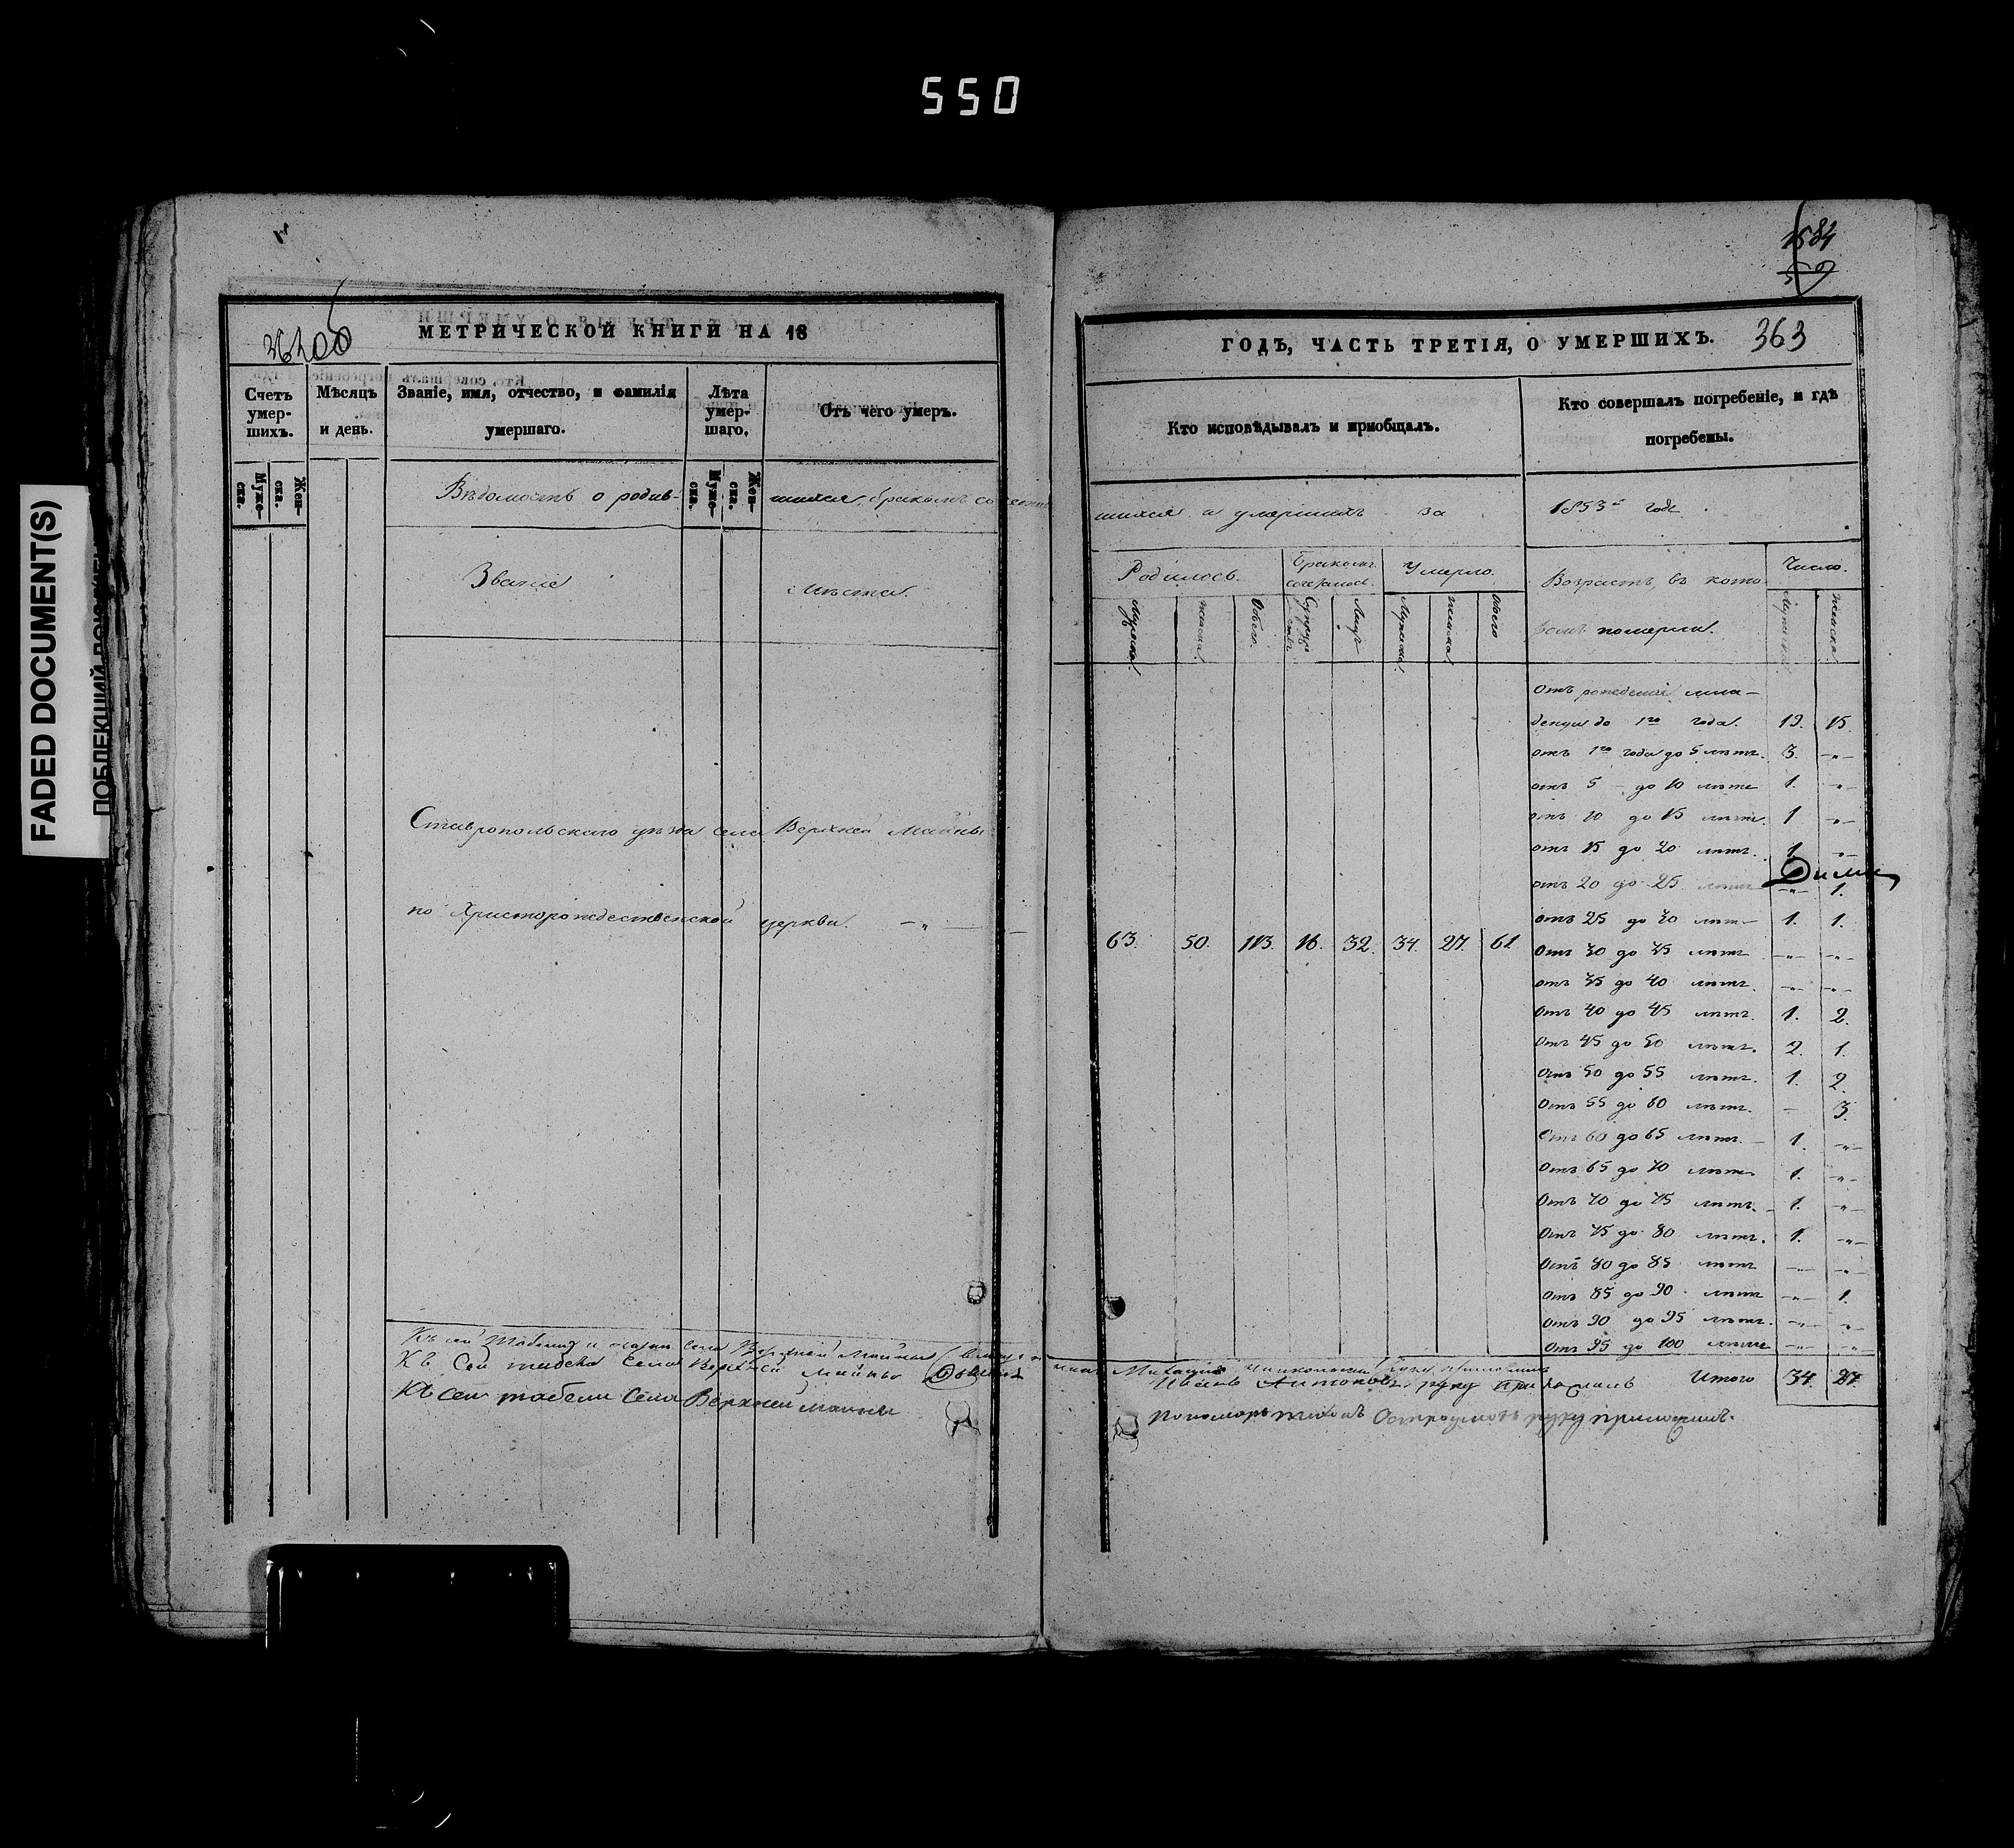 550
FADED DOCUMENT(S)
МЕТРИЧЕСКОЙ КНИГИ НА 18
Счетъ умер-шихъ.
Муже-ска.
Жен-ска.
Мѣсяцъ и день.
Званіе, имя, отчество, и фамилія умершаго.
Лѣта умер-шаго.
Муже-ска.
Жен-ска.
Отъ чего умеръ.
Вѣдомость о родив-
шихся, бракомъ
Званіе
мѣста.
Ставропольскаго уѣзда села Верхней Майны
по Христорождественской церкви. — „ —
Къ сей табели села Верхней Майны
Къ сей табели села Верхней Майны
Къ сей табели села Верхней Майны
1584
363
ГОДЪ, ЧАСТЬ ТРЕТІЯ, О УМЕРШИХЪ.
Кто исповѣдывалъ и пріобщалъ.
Кто совершалъ погребеніе, и гдѣ погребены.
шихся и умершихъ за 1853й годъ.
Родилось.
Мужеска.
женска.
Обоего.
Бракомъ сочеталось.
Супружествъ
Лицъ
Умерло.
Мужеска.
женска.
Обоего
Возрастъ, въ кото-
ромъ померли.
Число.
Мужеска
женска.
63. 50. 113. 16. 32. 34. 27. 61.
Отъ рожденія мла-
денцы до 1го года. 19. 15.
отъ 1го года до 5 лѣтъ. 3. —„—
отъ 5 — до 10 лѣтъ 1. —„—
отъ 10 до 15 лѣтъ. 1 —„—
отъ 15 до 20 лѣтъ. 1. —„—
отъ 20 до 25 лѣтъ —„— 1.
отъ 25 до 30 лѣтъ 1. 1.
Отъ 30 до 35 лѣтъ —„— —„—
отъ 35 до 40 лѣтъ. —„— —„—
Отъ 40 до 45 лѣтъ. 1. 2.
Отъ 45 до 50 лѣтъ. 2. 1.
Отъ 50 до 55 лѣтъ. 1. 2.
Отъ 55 до 60 лѣтъ. — 3.
Отъ 60 до 65 лѣтъ. 1. —„—
Отъ 65 до 70 лѣтъ. 1. —„—
Отъ 70 до 75 лѣтъ. 1. —„—
Отъ 75 до 80 лѣтъ. 1. —„—
Отъ 80 до 85 лѣтъ —„— —„—
Отъ 85 до 90 лѣтъ —„— 1.
отъ 90 до 95 лѣтъ. —„— —„—
Отъ 95 до 100 лѣтъ —„— —„—
Итого 34. 27.
Иванъ Антоновъ руку приложилъ
Пономарь Остроумовъ руку приложилъ.